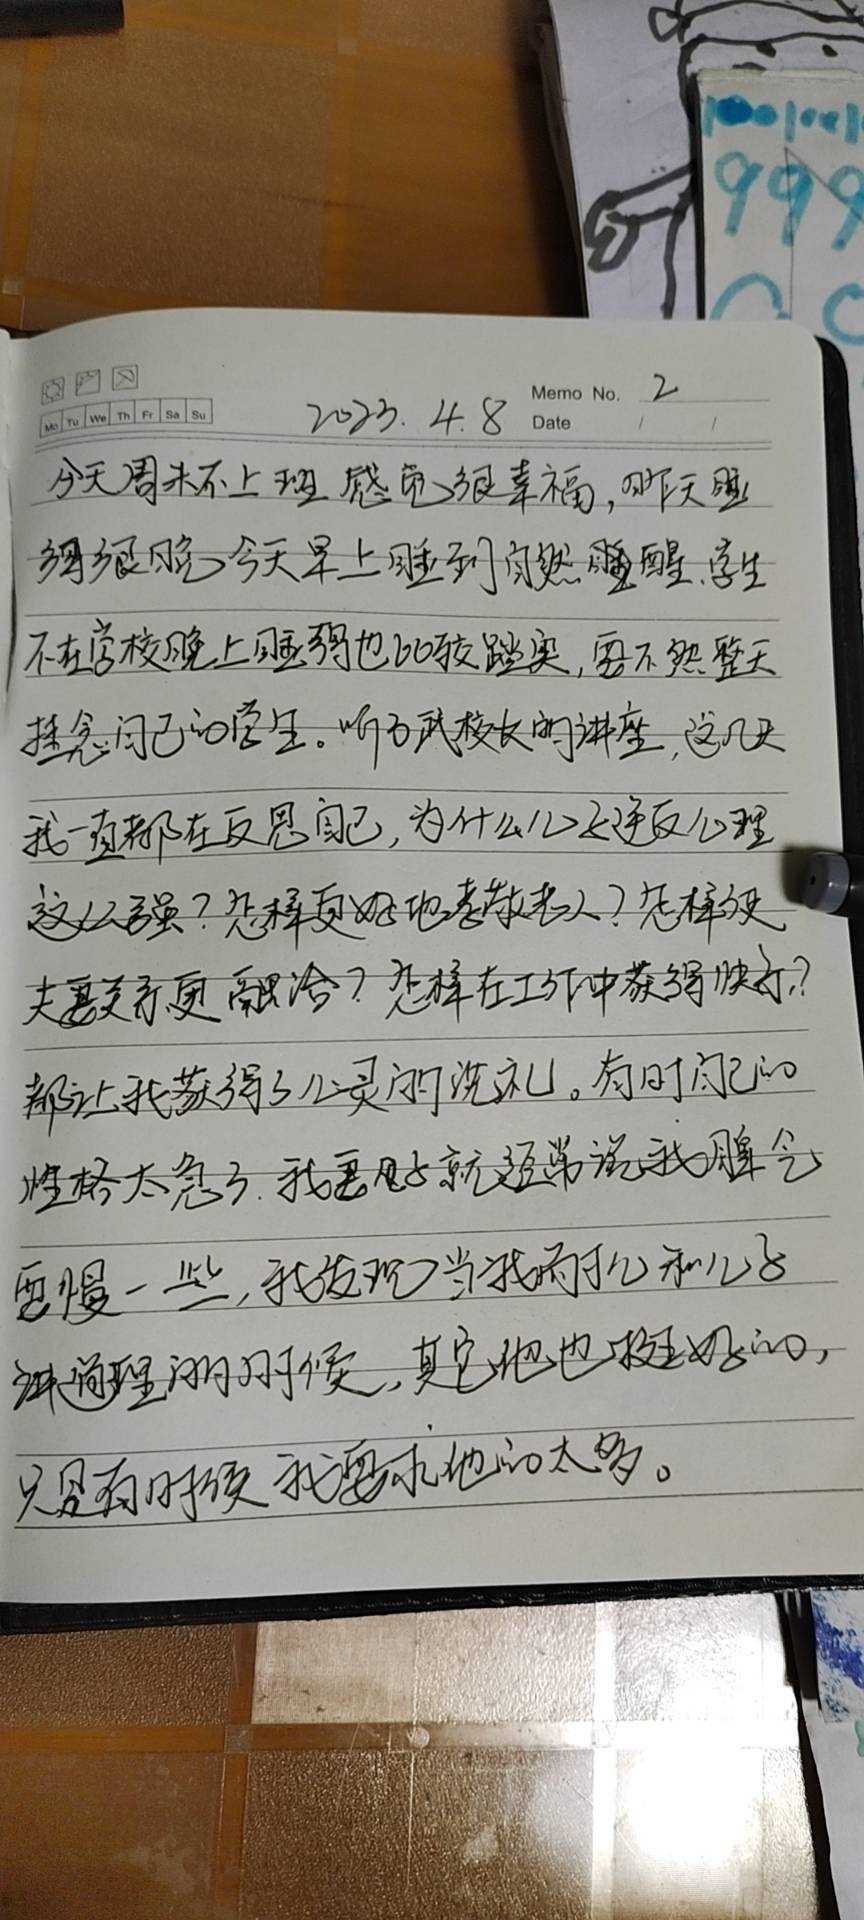 999
Memo No. 2
Mo Tu We Th Fr Sa Su
2023.4.8
Date / /
今天周末不上班感觉很幸福,昨天睡
得很晚今天早上睡到自然睡醒.学生
不在学校晚上睡得也比较踏实,要不然整天
挂念自己的学生。听了武校长的讲座,这几天
我一直都在反思自己,为什么儿子逆反心理
这么强?怎样更好地孝敬老人?怎样使
夫妻关系更融洽?怎样在工作中获得快乐?
都让我获得了心灵的洗礼。有时自己的
性格太急了.我妻子就经常说我脾气
要慢一些,我发现当我耐心和儿子
讲道理的时候,其它他也挺好的,
只是有时候我要求他的太多。